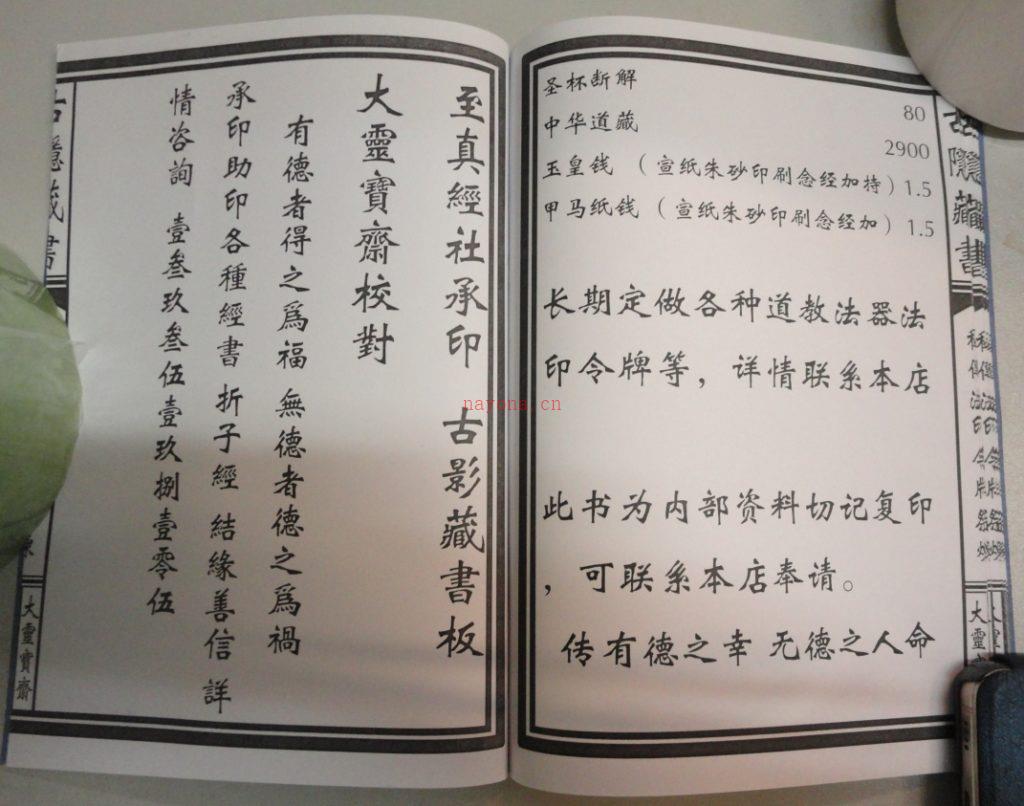 至真經社承印 古影藏書板
大靈寶齋校對
有德者得之爲福 無德者德之爲禍
承印助印各種經書 折子經 結緣善信 詳
情咨詢 壹叁玖叁伍壹玖捌壹零伍
隱藏書
大靈寶齋
圣杯断解 80
中华道藏 2900
玉皇钱 （宣纸朱砂印刷念经加持）1.5
甲马纸钱 （宣纸朱砂印刷念经加）1.5
长期定做各种道教法器法
印令牌等，详情联系本店
此书为内部资料切记复印
，可联系本店奉请。
传有德之幸 无德之人命
隱藏書
大靈
nayona.cn